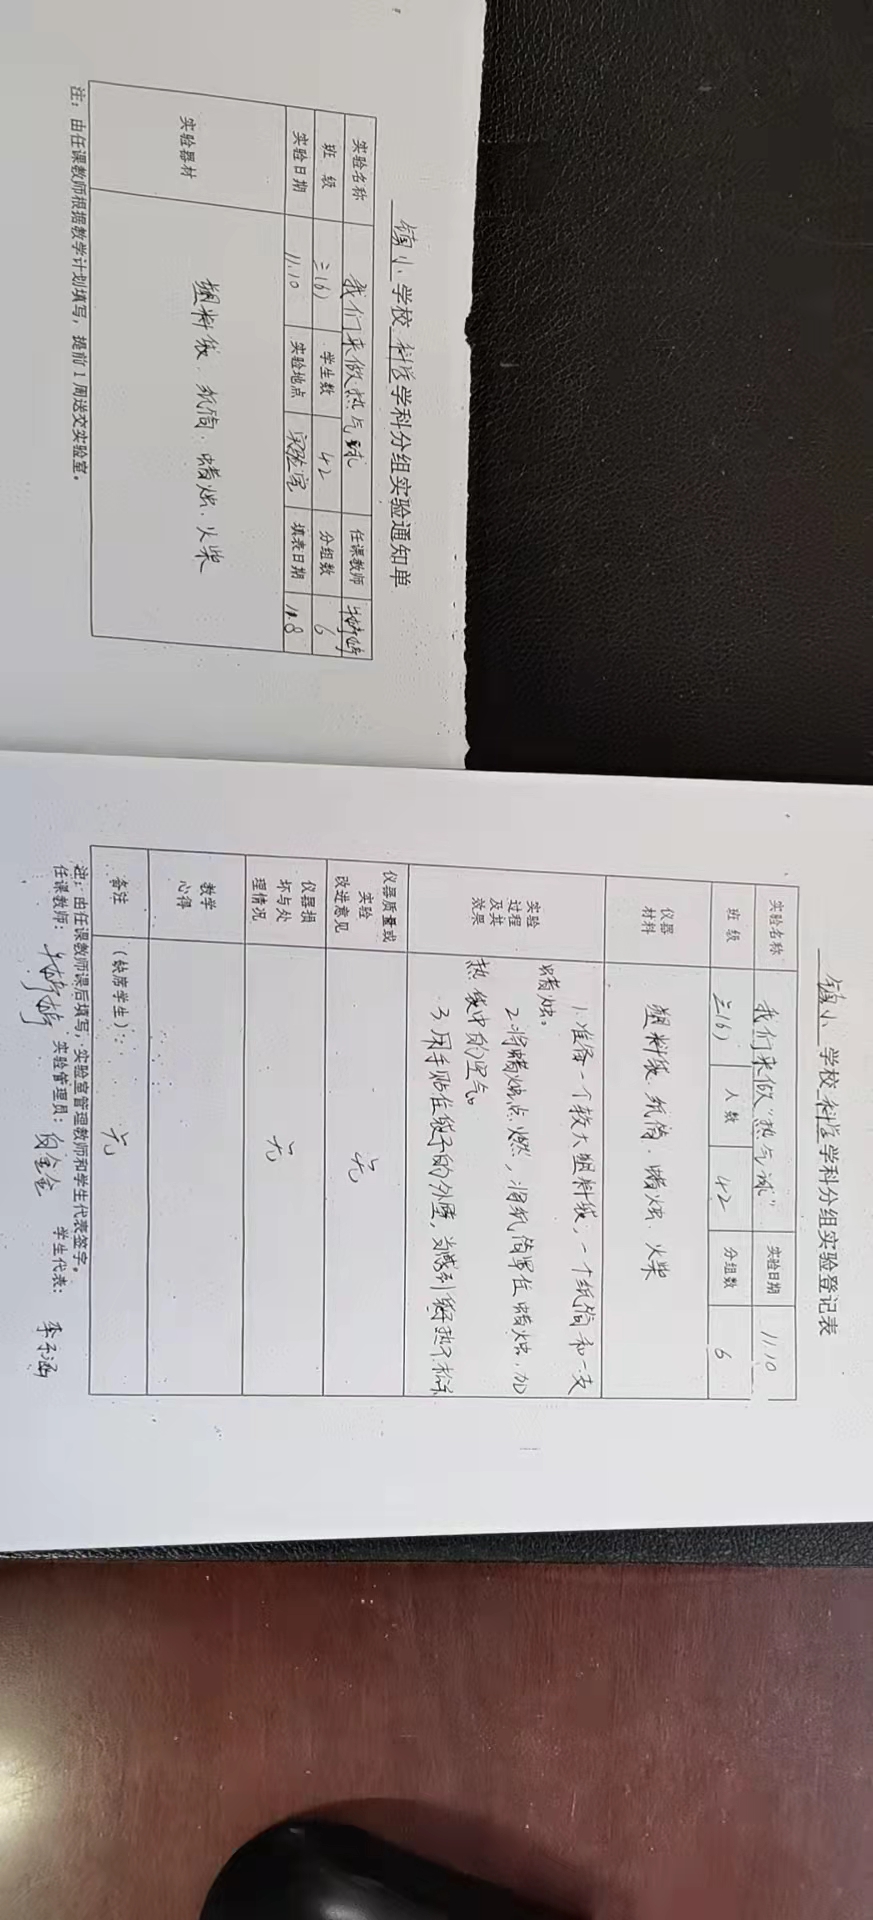 镇小 学校 科学 学科分组实验通知单
实验名称 我们来做热气球 任课教师
班 级 三(6) 学生数 42 分组数 6
实验日期 11.10 实验地点 实验室 填表日期 11.8
实验器材 塑料袋、纸筒、蜡烛、火柴
注：由任课教师根据教学计划填写，提前1周送交实验室。
镇小 学校 科学 学科分组实验登记表
实验名称 我们来做“热气球” 实验日期 11.10
班 级 三(6) 人数 42 分组数 6
仪器
材料 塑料袋、纸筒、蜡烛、火柴
实验
过程
及其
效果
1.准备一个较大塑料袋，一个纸筒和一支
蜡烛。
2.将蜡烛点燃，用纸筒罩住蜡烛，加
热袋中的空气。
3.用手贴住袋子的外壁，当感到袋子热了松手
仪器质量或
实验
改进意见 无
仪器损
坏与处
理情况 无
教学
心得
备注 （缺席学生）： 无
注：由任课教师课后填写，实验室管理教师和学生代表签字。
任课教师： 实验管理员： 学生代表：